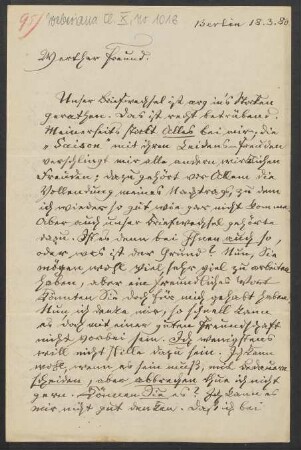 95) Weberiana Cl. X, No 1018
Berlin 18.3.80
Werther Freund.
Unser Briefwechsel ist arg in's Stocken
gerathen. Das ist recht betrübend.
Meinerseits stockt Alles bei mir; die
"Saison" mit ihren Leidens-Freuden
verschlingt mir alle andern wirklichen
Freuden; dazu gehört vor Allem die
Vollendung meines Nachtrags, zu dem
ich wieder so gut wie gar nicht komme.
Aber auch unser Briefwechsel gehörte
dazu. Ist es denn bei Ihnen auch so,
oder was ist der Grund? Nun, Sie
mögen wohl viel, sehr viel zu arbeiten
haben, aber ein freundliches Wort
könnten Sie doch für mich gehabt haben.
Nun ich denke mir, so schnell kann
es doch mit einer guten Freundschaft
nicht vorbei sein. Ich wenigstens
will nicht stille dazu sein. Ich kann
wohl, wenn es sein muß, mit Bedauern
scheiden, aber abbrechen thue ich nicht
gern. Können Sie es? Ich kann es
mir nicht gut denken. Daß ich bei